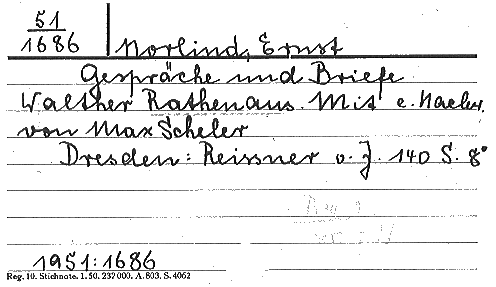 51
1686
Norlind, Ernst
Gespräche und Briefe
Walther Rathenaus. Mit e. Nachw.
von Max Scheler
Dresden: Reissner o. J. 140 S. 8°
1951:1686
Reg. 10. Stichnote. 1. 50. 232000. A. 803. S. 4062